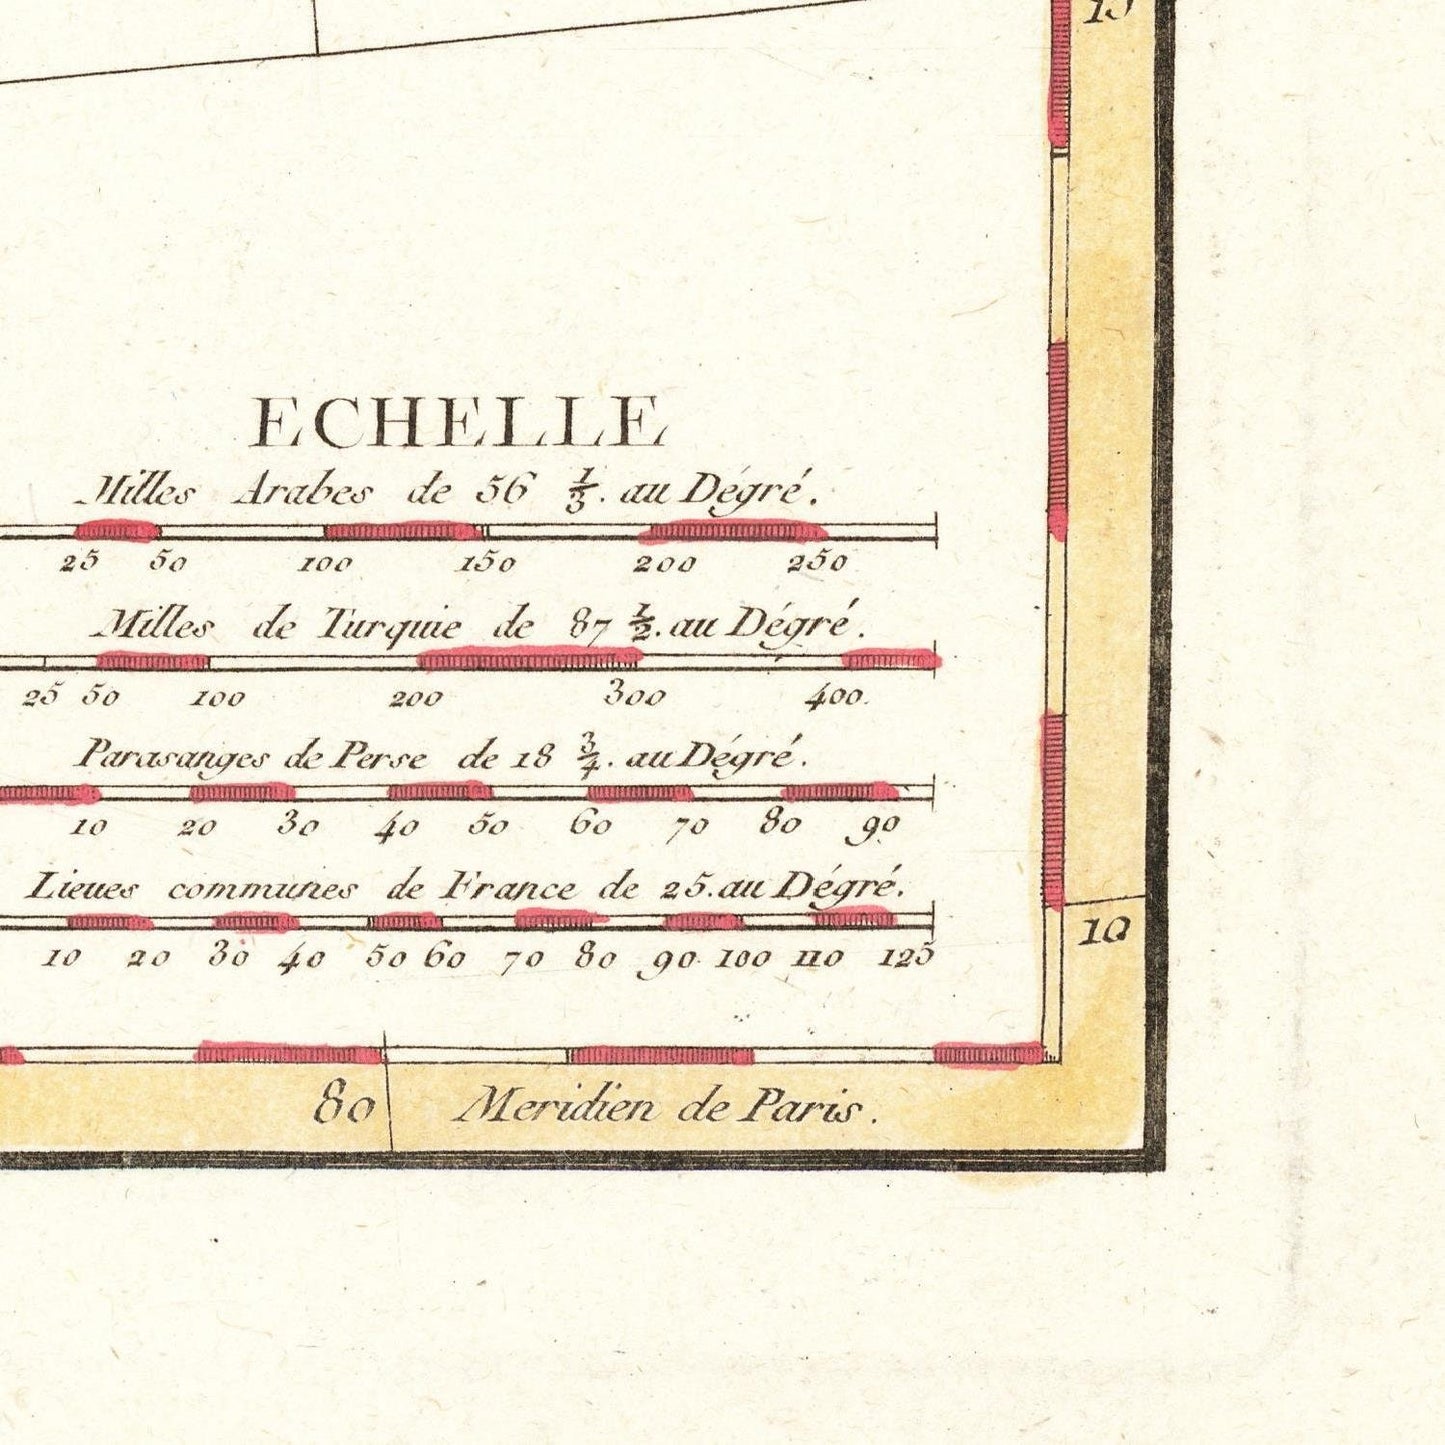 15
ECHELLE
Milles Arabes de 56 1/3. au Dégré.
25 50 100 150 200 250
Milles de Turquie de 87 1/2. au Dégré.
25 50 100 200 300 400.
Parasanges de Perse de 18 3/4. au Dégré.
10 20 30 40 50 60 70 80 90
Lieues communes de France de 25. au Dégré.
10 20 30 40 50 60 70 80 90 100 110 125
10
80 Meridien de Paris.